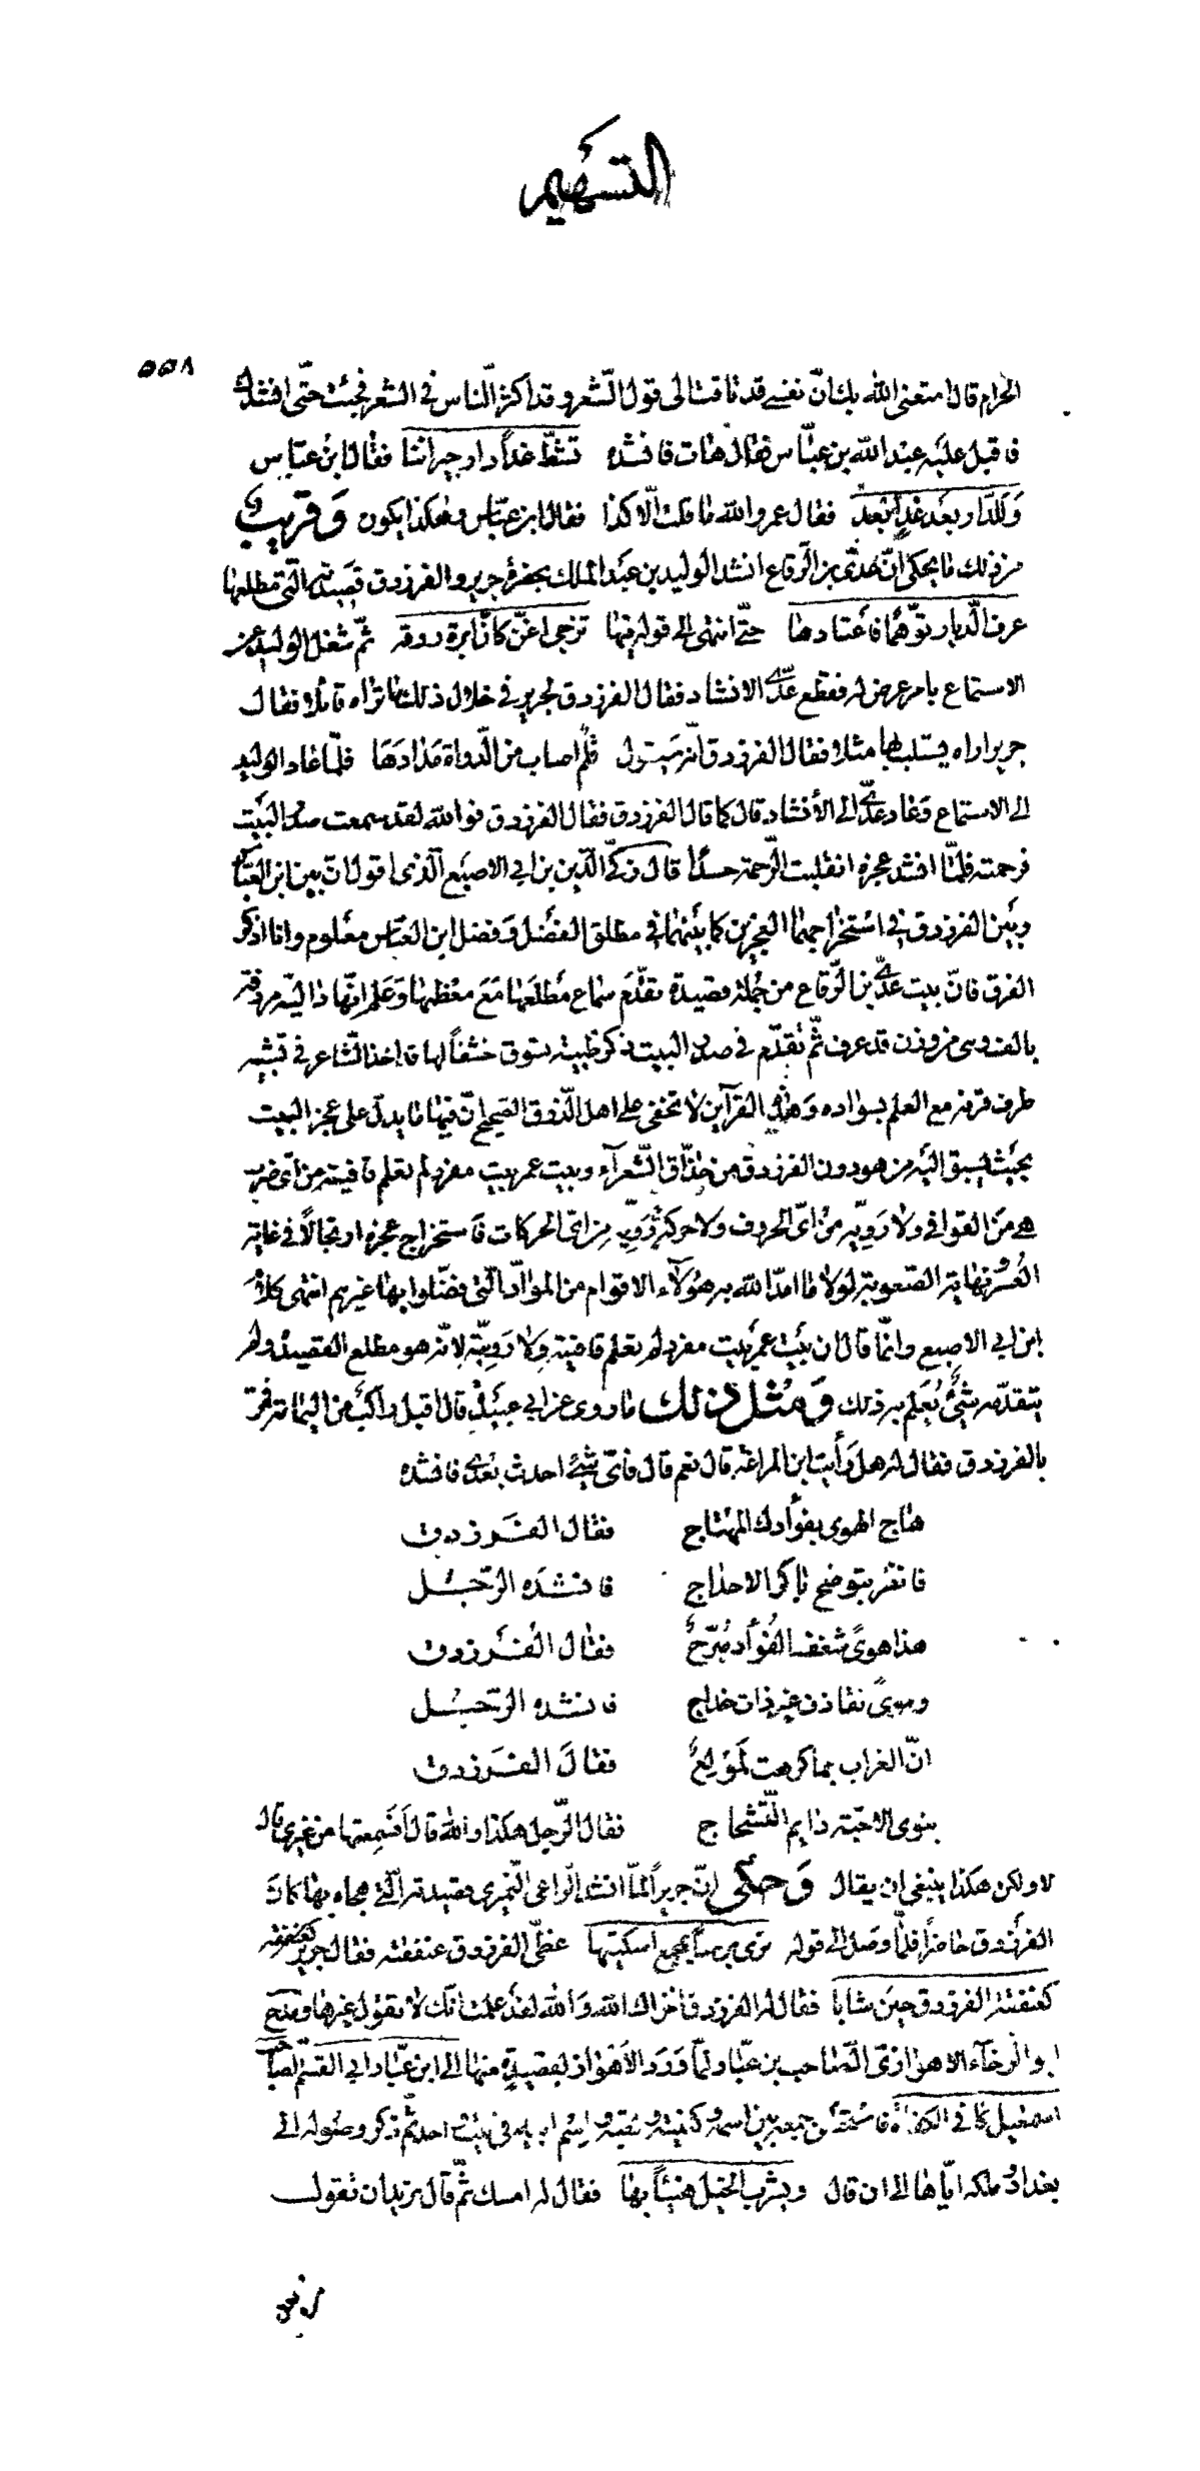 التسهيم
٥٥٨
الحرام قال امتعنى الله بك انّ نفسى قد تاقت الى قول الشعر وقد اكثر النّاس فى الشعر فجئت حتّى انشدك
فاقبل عليه عبد الله بن عبّاس فقال هات فانشده تشطّ غداً دار جيراننا فقال ابن عبّاس
وَلَلدّار بعد غدٍ ابعد فقال عمر والله ما قلت الّا كذا فقال ابن عبّاس وهكذا يكون وَقريب
من ذلك ما يحكى انّ عدىّ بن الرّقاع انشد الوليد بن عبد الملك بحضرة جرير والفرزدق قصيدته الّتى مطلعها
عرف الدّيار توهّماً فاعتادها حتّى انتهى الى قوله فيها تزجى اغنّ كانّ ابرة روقه ثمّ شغل الوليد عن
الاستماع بامر عرض له فقطع عدىّ الانشاد فقال الفرزدق لجرير فى خلال ذلك ما تراه قائلا فقال
جرير اراه يستلب بها مثلا فقال الفرزدق انّه سيقول قلم اصاب من الدّواة مدادَهَا فلمّا عاد الوليد
الى الاستماع وَعاد عدىّ الى الأنشاد قال كما قال الفرزدق فقال الفرزدق فوالله لقد سمعت صدر البيت
فرحمته فلمّا انشد عجزه انقلبت الرّحمة حسدًا قال زكىّ الدّين بن ابى الاصبع الّذى اقول انّ بين ابن العبّاس
وبين الفرزدق فى استخراجهما العجزين كما بينهما فى مطلق الفضل وَفضل ابن العبّاس معلوم وانا اذكر
الفرق فانّ بيت عدىّ بن الرّقاع من جملة قصيدة تقدّم سماع مطلعها مَعَ معظمها وَعلم انّها داليّة مردفة
بالف وهى من وزن قد عرف ثمّ تقدّم فى صدر البيت ذكر ظبية تسوق خشفاً لها قد اخذ الشّاعر فى تشبيه
طرف قرنه مع العلم بسواده وَهذه القرآين لا تخفى على اهل الذّوق الصّحيح انّ فيها ما يدلّ على عجز البيت
بحيث يسبق اليه من هو دون الفرزدق من حذّاق الشّعرآء وبيت عمر بيت مفرد لم تعلم قافيته من اىّ ضرب
هى من القوافى ولا رَويّه من اىّ الحروف ولا حركة رَويّه من اىّ الحركات فاستخراج عجزه ارتجالاً فى غاية
العُسْر ونهاية الصّعوبة لولا ما امدّ الله به هؤلآء الاقوام من الموادّ الّتى فضّلوا بها غيرهم انتهى كلام
ابن ابى الاصبع وانّما قال ان بيت عمر بيت مفرد لم تعلم قافيته وَلا رَويّه لانّه هو مطلع القصيدة ولم
يتقدّمه شىءٌ يُعلم به ذلك وَمثل ذلك ما روى عن ابى عبيدة قال اقبل راكبٌ من اليمامة فمرّ
بالفرزدق فقال له هل رَأيت ابن المراغة قال نعم قال فاىّ شىءٍ احدث بعدى فانشده
هاج الهوى بفوأدك المهتاج فقال الفرزدق
فانظر بتوضح باكر الاحداج فانشده الرّجل
هذا هوىً شغف الفُوأد مُبرّحٌ فقال الفرزدق
ونوىً تقاذف غير ذات خداج فانشده الرّجل
انّ الغراب بما كرهت لمولعٌ فقال الفرزدق
بنوى الاحبّة دايم التّشحاج فقال الرّجل هكذا والله قال أفسمعتها من غيرى قال
لا ولكن هكذا ينبغى ان يقال وَحكى انّ جريراً لمّا انشد الرّاعى النّميرى قصيدته الّتى هجاه بها كان
الفرزدق حاضراً فلمّا وصل الى قوله ترى برصاً بمجمع اسكتيها غطّى الفرزدق عنفقته فقال جرير
كعنفقة الفرزدق حين شابا فقال له الفرزدق اخزاك الله وَالله لقد علمت انّك لا تقول غيرها ومدح
ابو الرّخآء الاهوازىّ الصّاحب بن عبّاد لمّا وَرَدَ الأهواز بقصيدةٍ منها الى ابن عبّاد ابى القسم الصّاحب
اسمعيل كافى الكفاة فاستحسن جمعه بين اسمه وكنيته ولقبه واسم ابيه فى بيت واحد ثمّ ذكر وصوله الى
بغداد وملكه ايّاها الى ان قال ويشرب الخيل هنيئاً بها فقال له امسك ثمّ قال تريد ان تقول